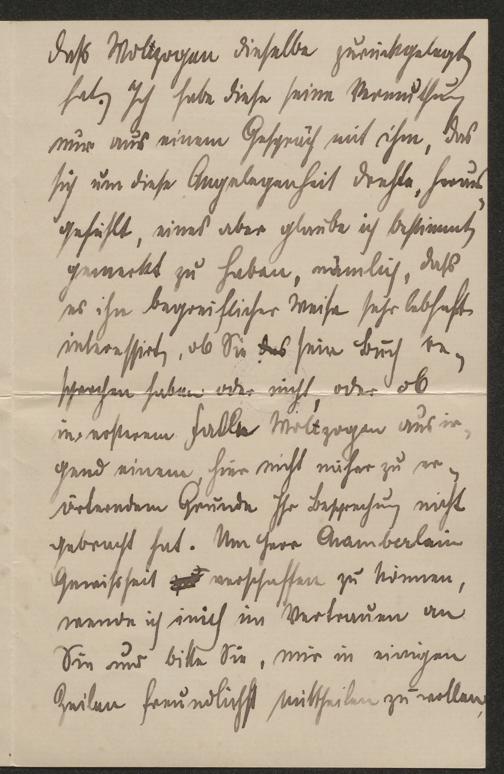 daß Wolzogen dieselbe zurückgelegt
hat. Ich habe diese seine Vermuthung
nur aus einem Gespräch mit ihm, das
sich um diese Angelegenheit drehte, heraus-
gefühlt, eines aber glaube ich bestimmt
gemerkt zu haben, nämlich, daß
es ihn begreiflicher Weise sehr lebhaft
interessirt, ob Sie das sein Buch be-
sprochen haben oder nicht, oder ob
im ersteren Falle Wolzogen aus ir-
gend einem, hier nicht näher zu er-
örterndem Grunde Ihr Besprechung nicht
gebracht hat. Um Herr Chamberlain
Gewissheit verschaffen zu können,
wende ich mich im Vertrauen an
Sie und bitte Sie, mir in einigen
Zeilen freundlichst mittheilen zu wollen,